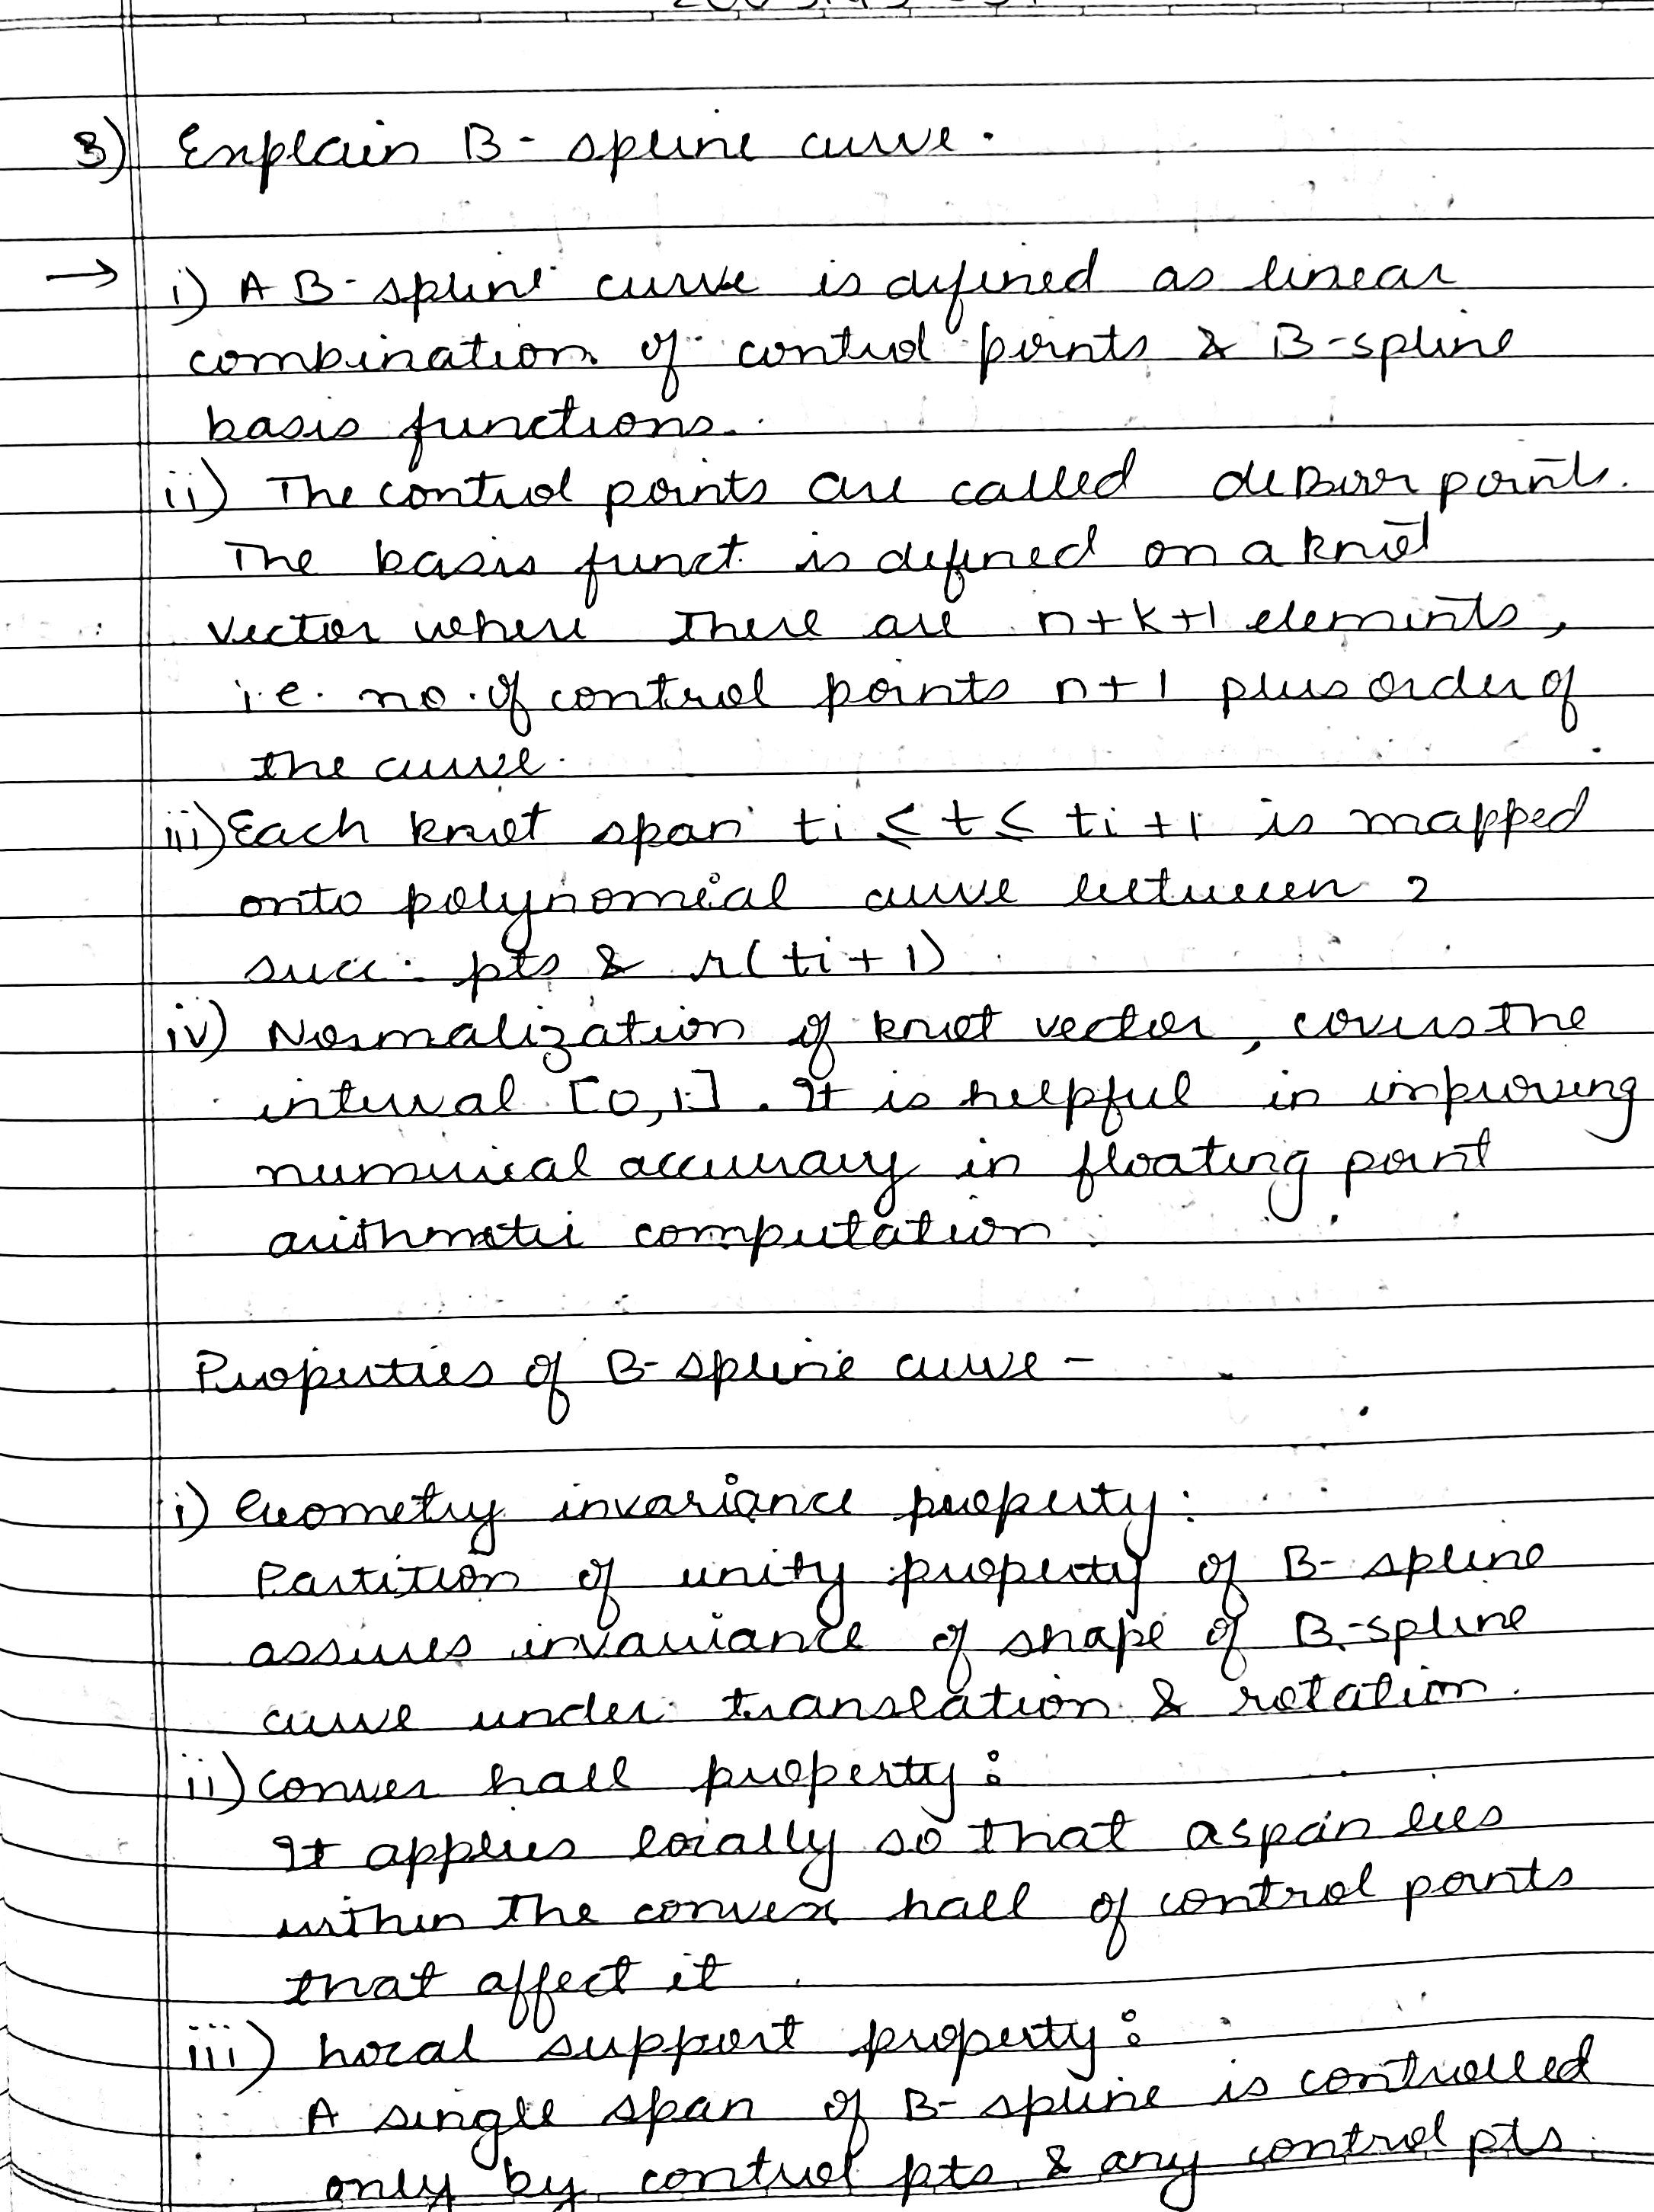 3) Explain B-spline curve.
→ i) A B-spline curve is defined as linear
combination of control points & B-spline
basis functions.
ii) The control points are called deBoor points.
The basis funct. is defined on a knot
vector where there are n+k+1 elements,
i.e. no. of control points n+1 plus order of
the curve.
iii) Each knot span ti ≤ t ≤ ti+1 is mapped
onto polynomial curve between 2
succ. pts & r(ti+1)
iv) Normalization of knot vector, covers the
interval [0,1]. It is helpful in improving
numerical accuracy in floating point
arithmetic computation.
Properties of B-spline curve -
i) Geometry invariance property:
Partition of unity property of B-spline
assures invariance of shape of B-spline
curve under translation & rotation.
ii) Convex hall property:
It applies locally so that a span lies
within the convex hall of control points
that affect it.
iii) Local support property:
A single span of B-spline is controlled
only by control pts & any control pts